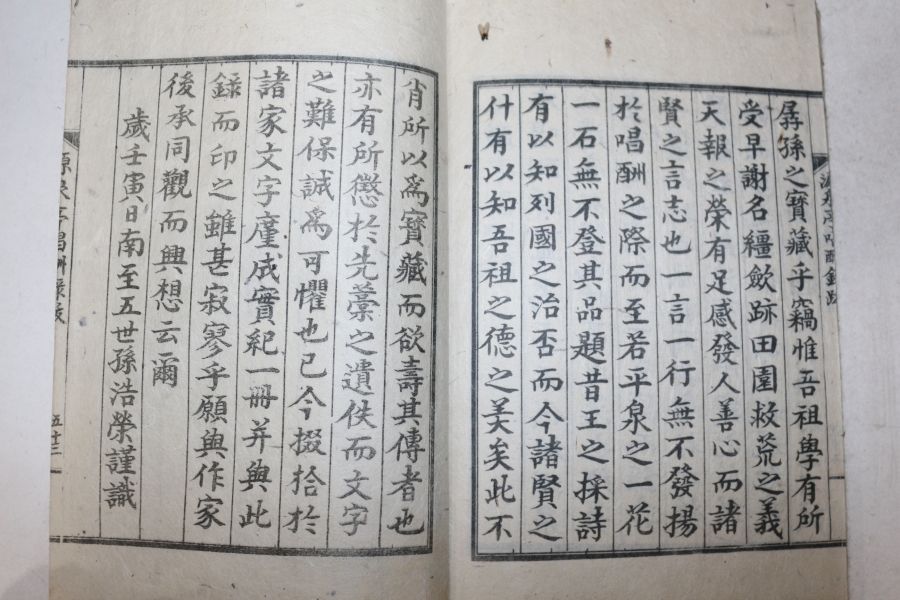 孱孫之寶藏乎竊惟吾祖學有所
受早謝名繮歛跡田園救荒之義
天報之榮有足感發人善心而諸
賢之言志也一言一行無不發揚
於唱酬之際而至若平泉之一花
一石無不登其品題昔王之採詩
有以知列國之治否而今諸賢之
什有以知吾祖之德之美矣此不
肖所以爲寶藏而欲壽其傳者也
亦有所懲於先藁之遺佚而文字
之難保誠爲可懼也已今掇拾於
諸家文字廑成實紀一冊并與此
錄而印之雖甚寂寥乎願與作家
後承同觀而興想云爾
歲壬寅日南至五世孫浩榮謹識
五十三